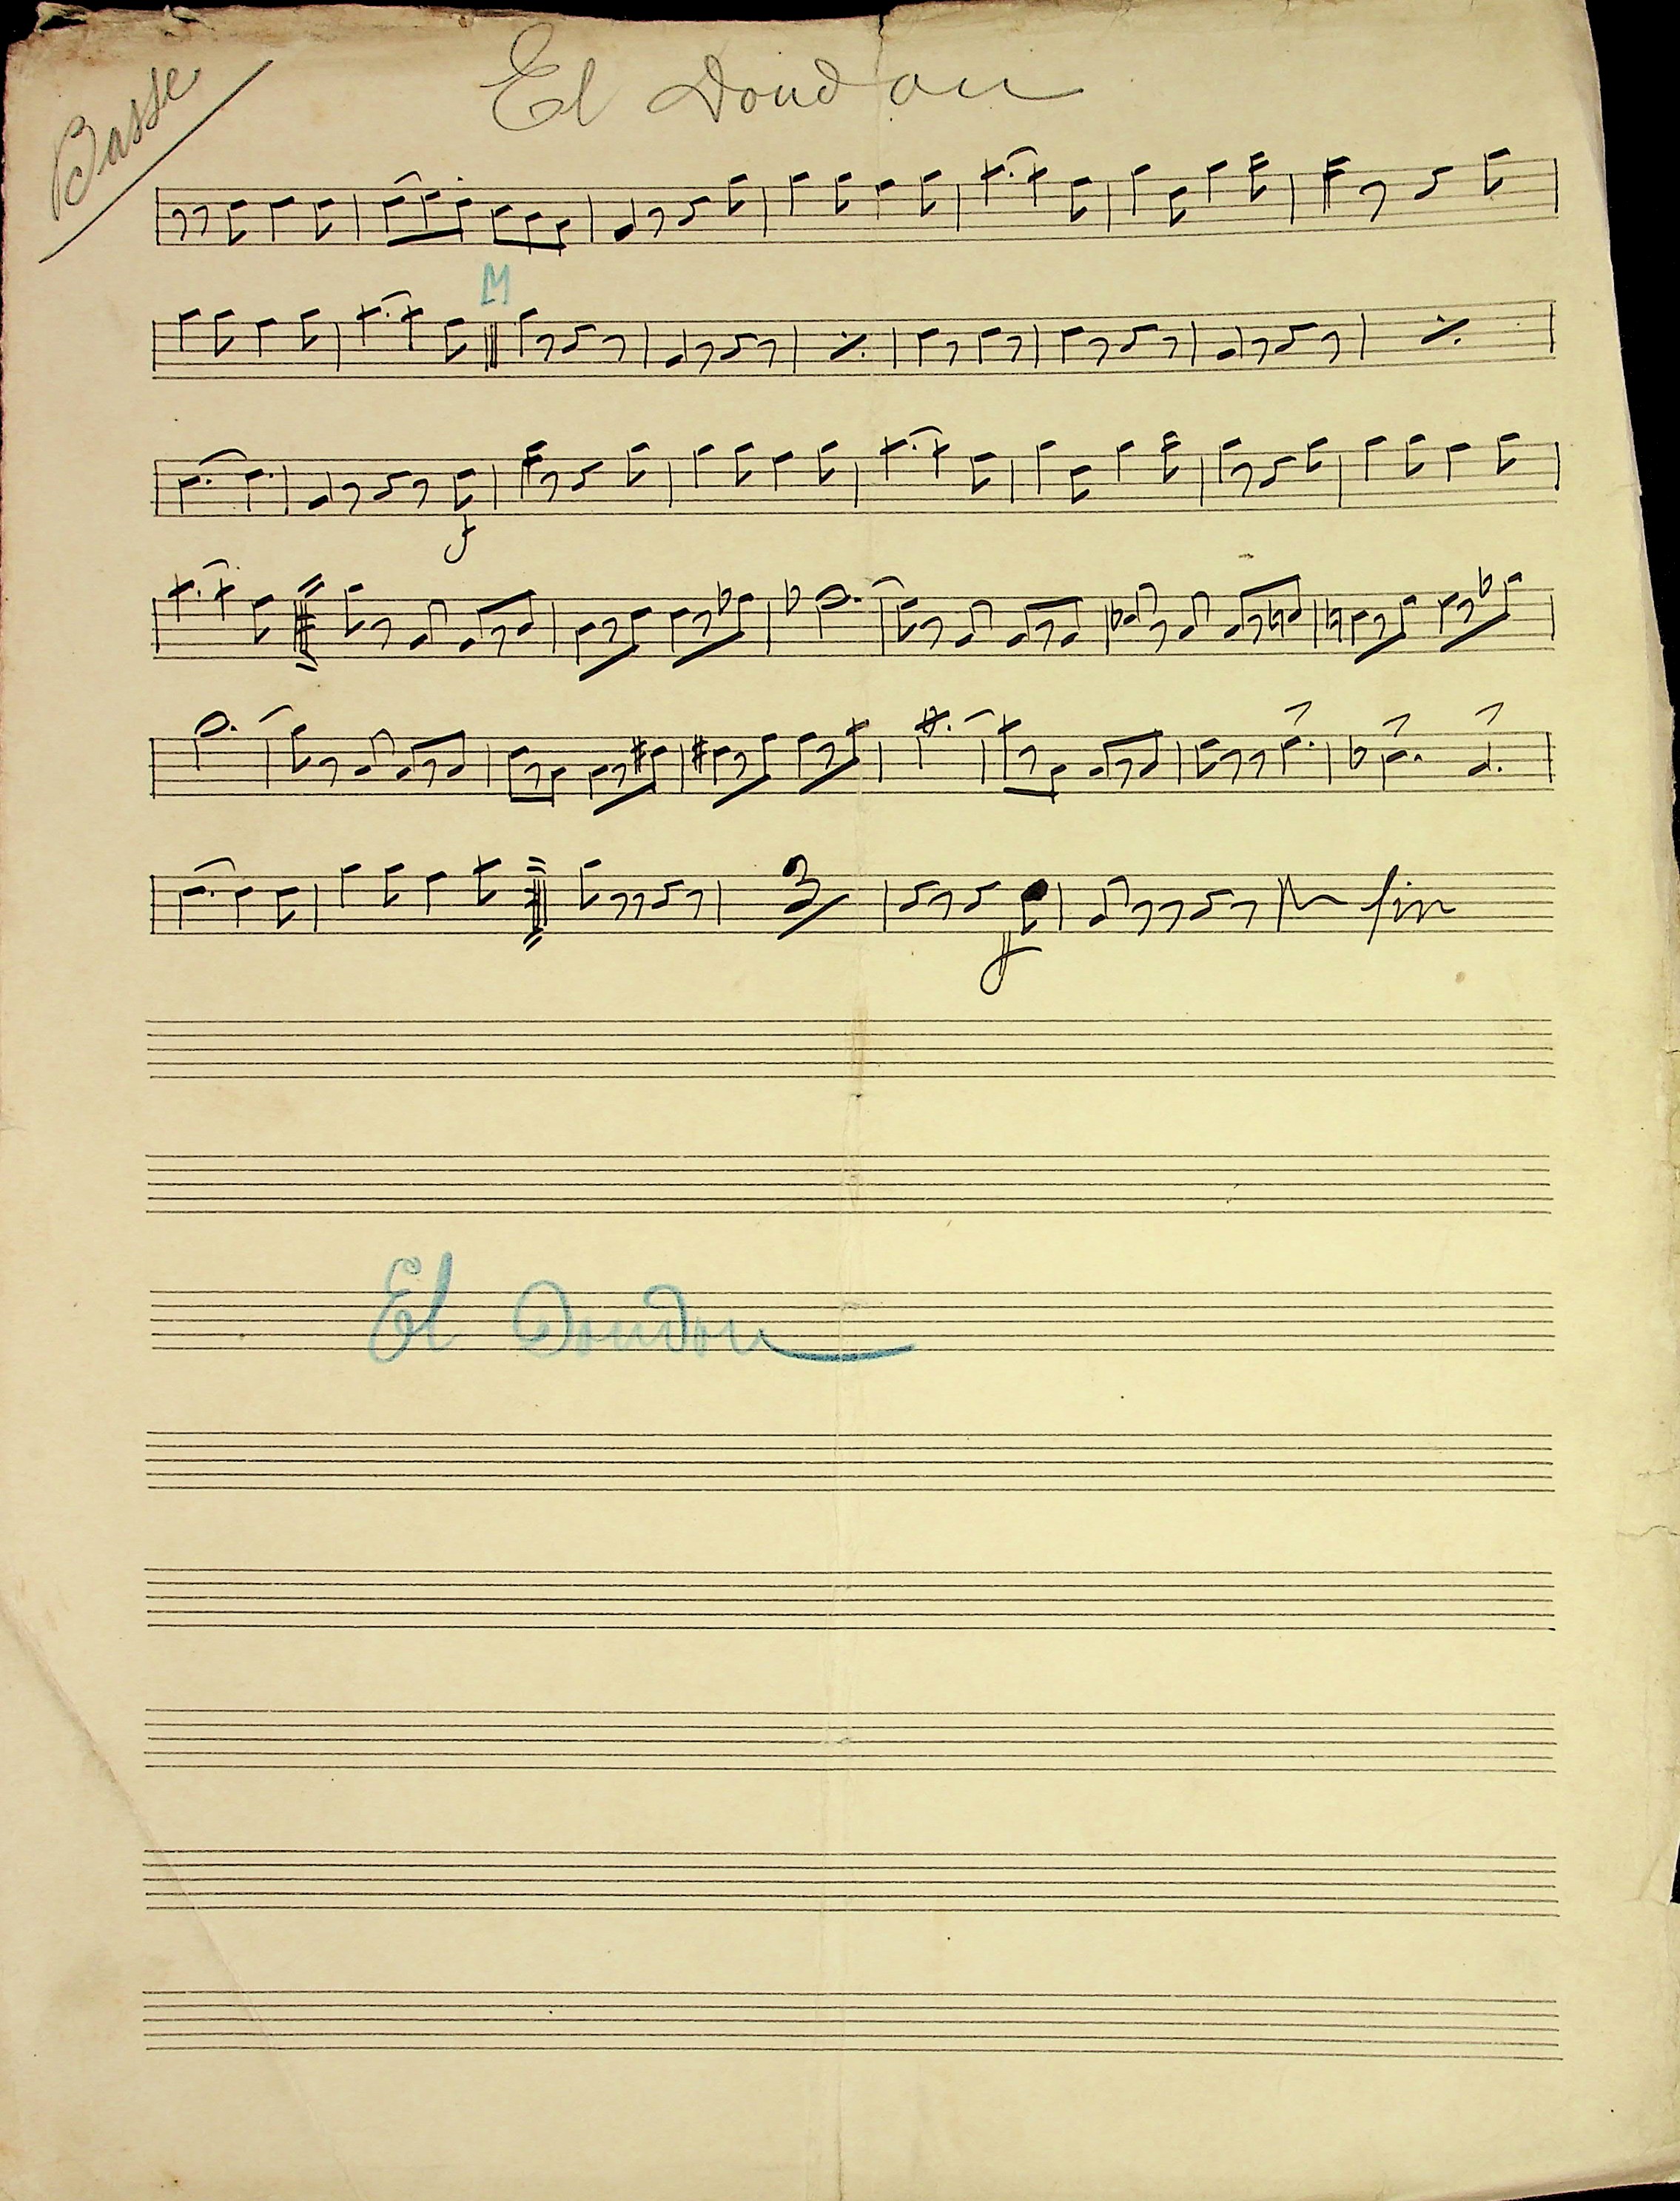 Basse
El Doudou
M
f
3
f
fin
El Doudou